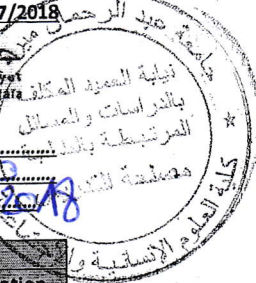 7/2018
جامعة عبد الرحمان ميرة
نيابة العميد المكلف
بالدراسات و المسائل
المرتبطة بالطلبة
مصلحة التدريس
كلية العلوم الإنسانية و
2018